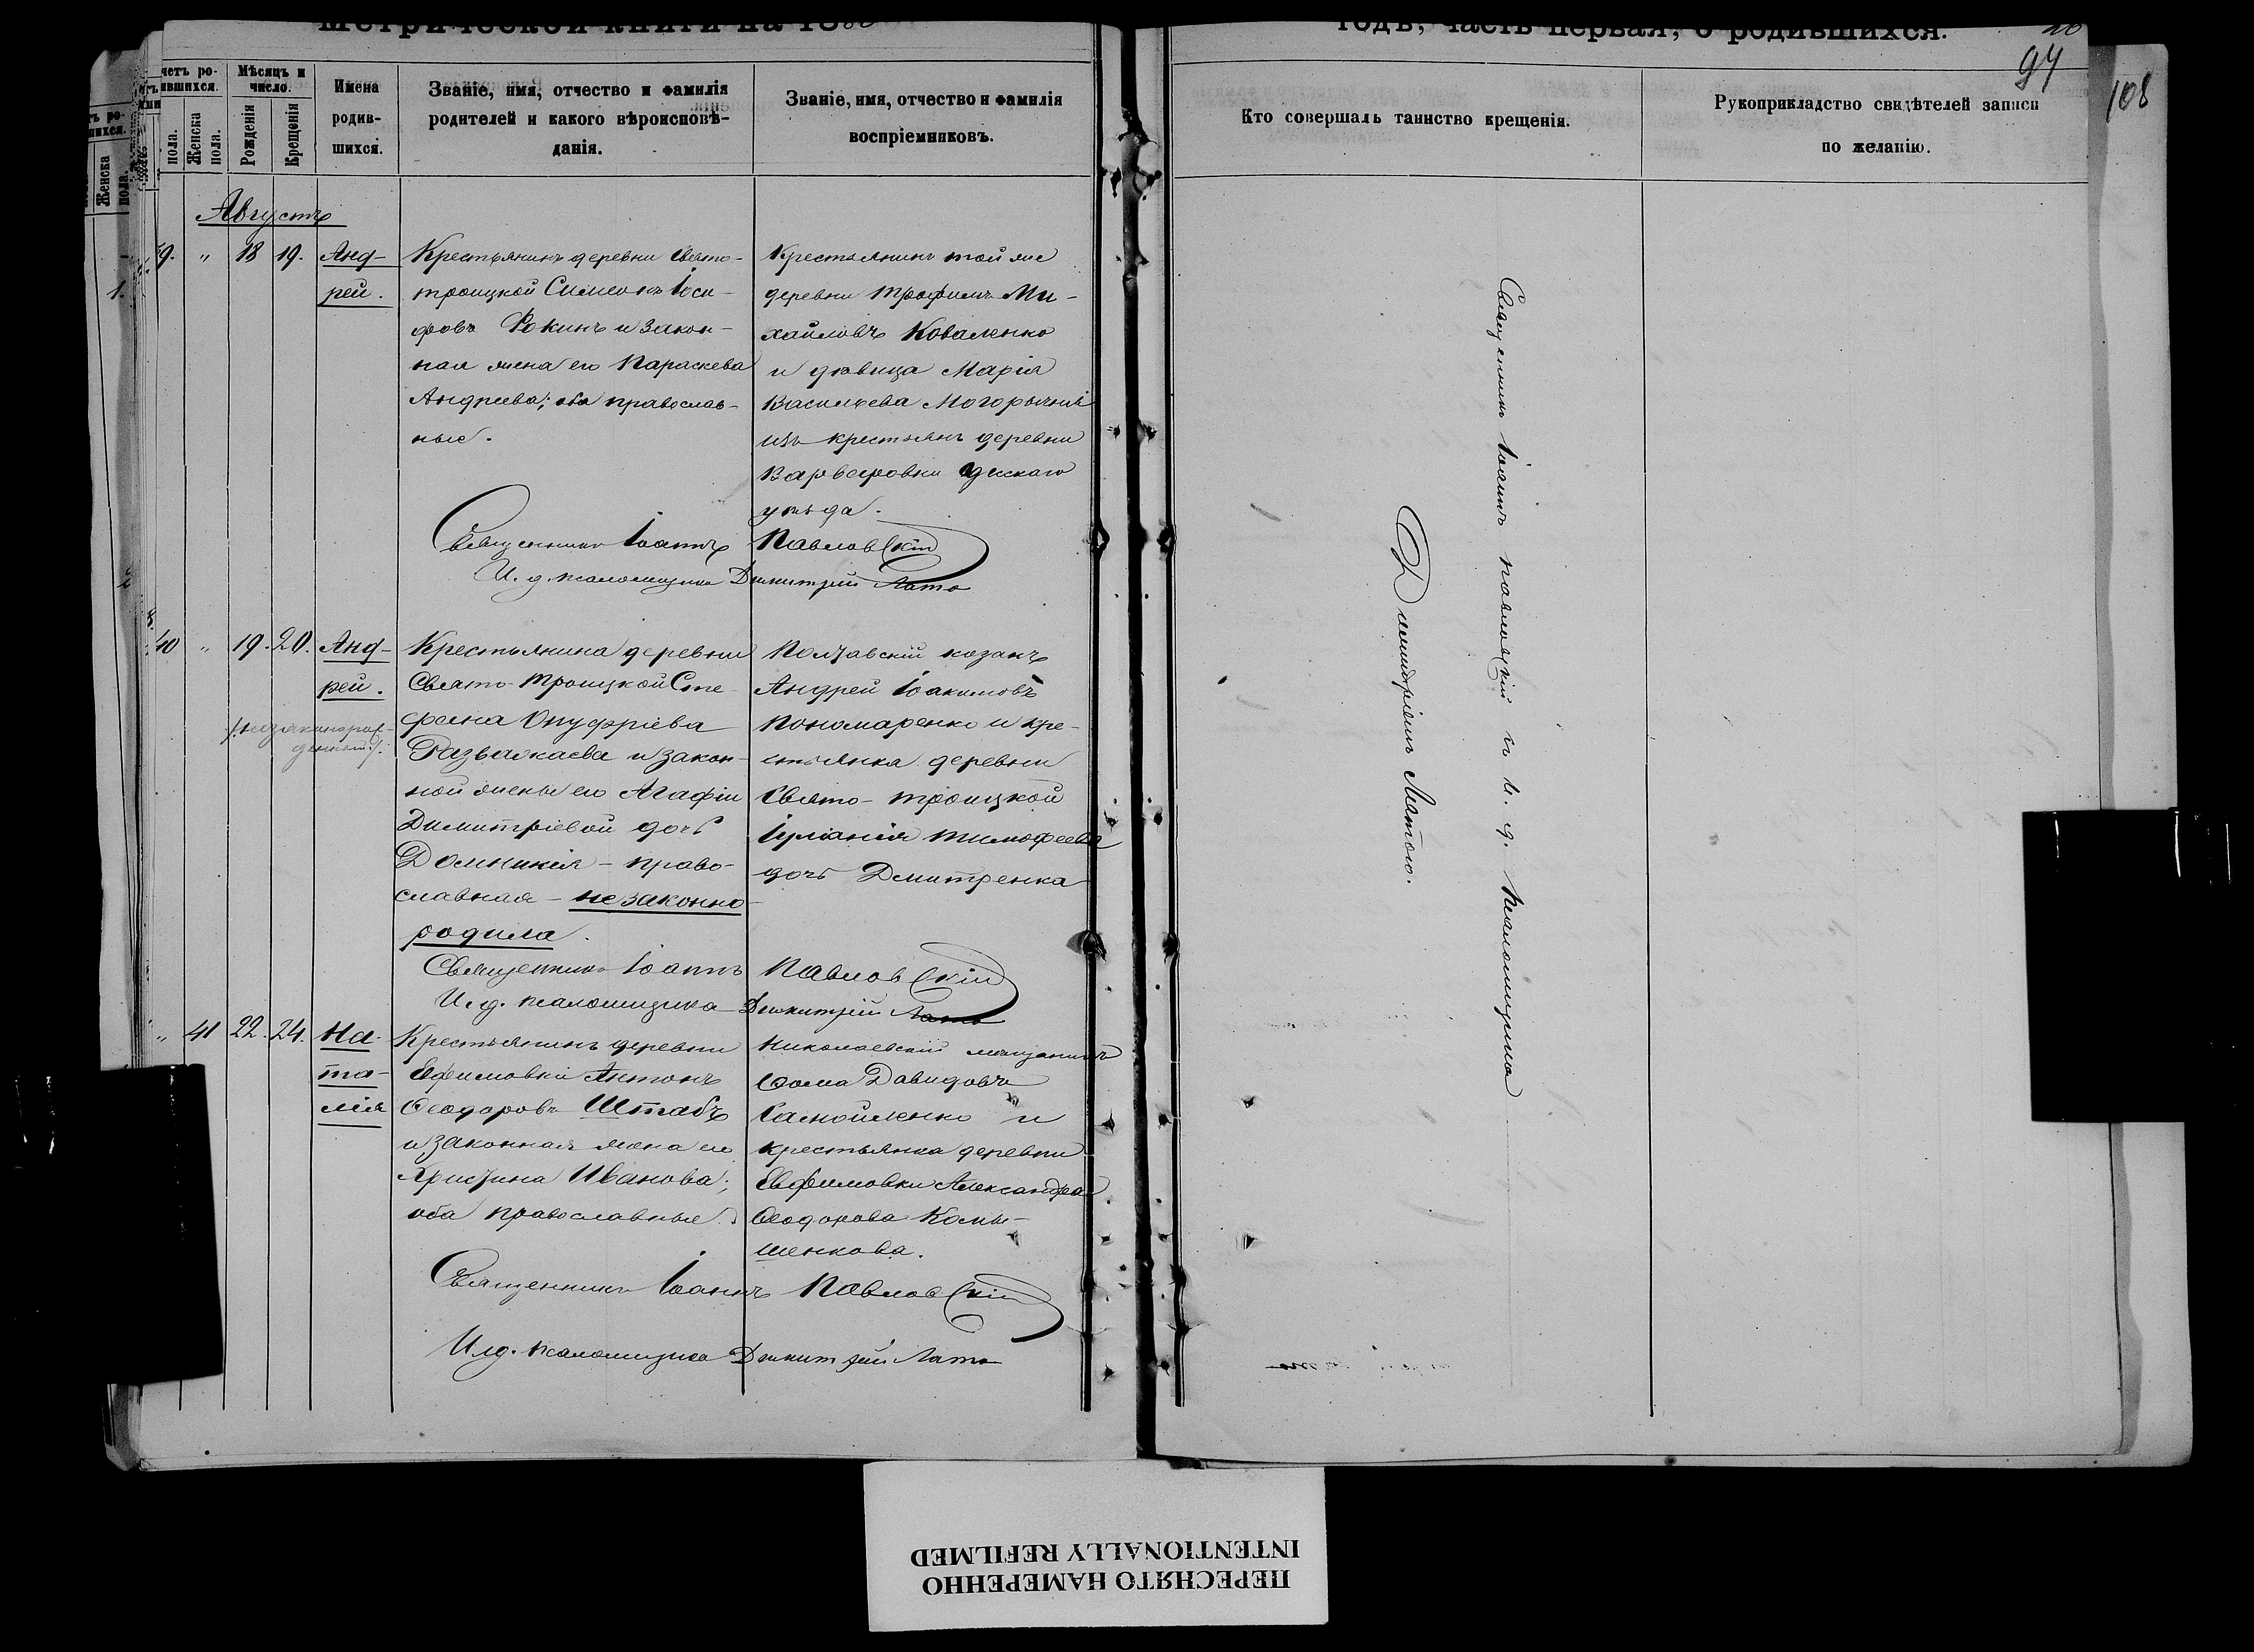 Метрической книги на 188
годъ, часть первая, о родившихся.
94
108
Счетъ родившихся.
Мѣсяцъ и число.
Имена родившихся.
Званіе, имя, отчество и фамилія родителей и какого вѣроисповѣданія.
Званіе, имя, отчество и фамилія воспріемниковъ.
Кто совершалъ таинство крещенія.
Рукоприкладство свидѣтелей записи по желанію.
пола.
Женска пола.
Рожденія
Крещенія
Августъ
39. " 18 19. Анд-
рей.
Крестьянинъ деревни Свято-
троицкой Симеонъ Іоси-
фовъ Фокинъ и закон-
ная жена его Параскева
Андреева; оба православ-
ные.
Крестьянинъ той же
деревни Трофимъ Ми-
хайловъ Коваленко
и дѣвица Марія
Васильева Могорычнія
изъ крестьянъ деревни
Варваровки Одесскаго
уѣзда.
Священникъ Іоаннъ Павловскій
И. д. псаломщика Димитрій Лата
40 " 19. 20. Анд-
рей.
/:незаконорож-
денный:/.
Крестьянина деревни
Свято-Троицкой Сте-
фана Онуфріева
Развалкаева и закон-
ной жены его Агафіи
Димитріевой дочь
Домникія - право-
славная - незаконно
родила.
Полтавскій козакъ
Андрей Іоакимовъ
Пономаренко и кре-
стьянка деревни
Свято-Троицкой
Іуліанія Тимофеева
дочь Дмитренка
Священникъ Іоаннъ Павловскій
И. д. псаломщика Димитрій Лата
" 41 22. 24. На-
та-
лія
Крестьянинъ деревни
Ефимовки Антонъ
Ѳеодоровъ Штабъ
и законная жена его
Христина Иванова;
оба православные.
Николаевскій мѣщанинъ
Ѳома Давидовъ
Самойленко и
крестьянка деревни
Евфимовки Александра
Ѳеодорова Комы-
шенкова.
Священникъ Іоаннъ Павловскій
И. д. псаломщика Димитрій Лата
Священникъ Іоаннъ Павловскій съ и. д. псаломщика
Димитріемъ Латою.
ПЕРЕСНЯТО НАМЕРЕННО
INTENTIONALLY REFILMED